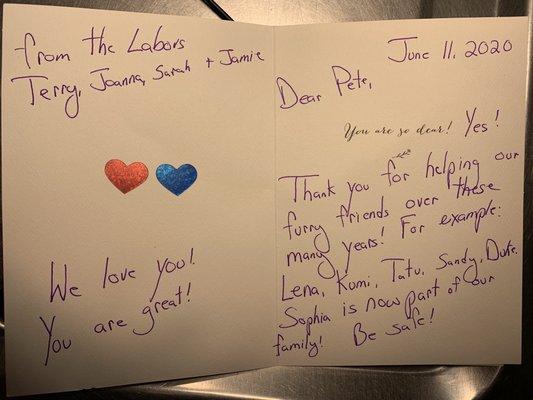 from the Labors
Terry, Joanna, Sarah + Jamie
We love you!
You are great!
June 11, 2020
Dear Pete,
You are so dear! Yes!
Thank you for helping our
furry friends over these
many years! For example:
Lena, Komi, Tatu, Sandy, Duke.
Sophia is now part of our
family! Be safe!